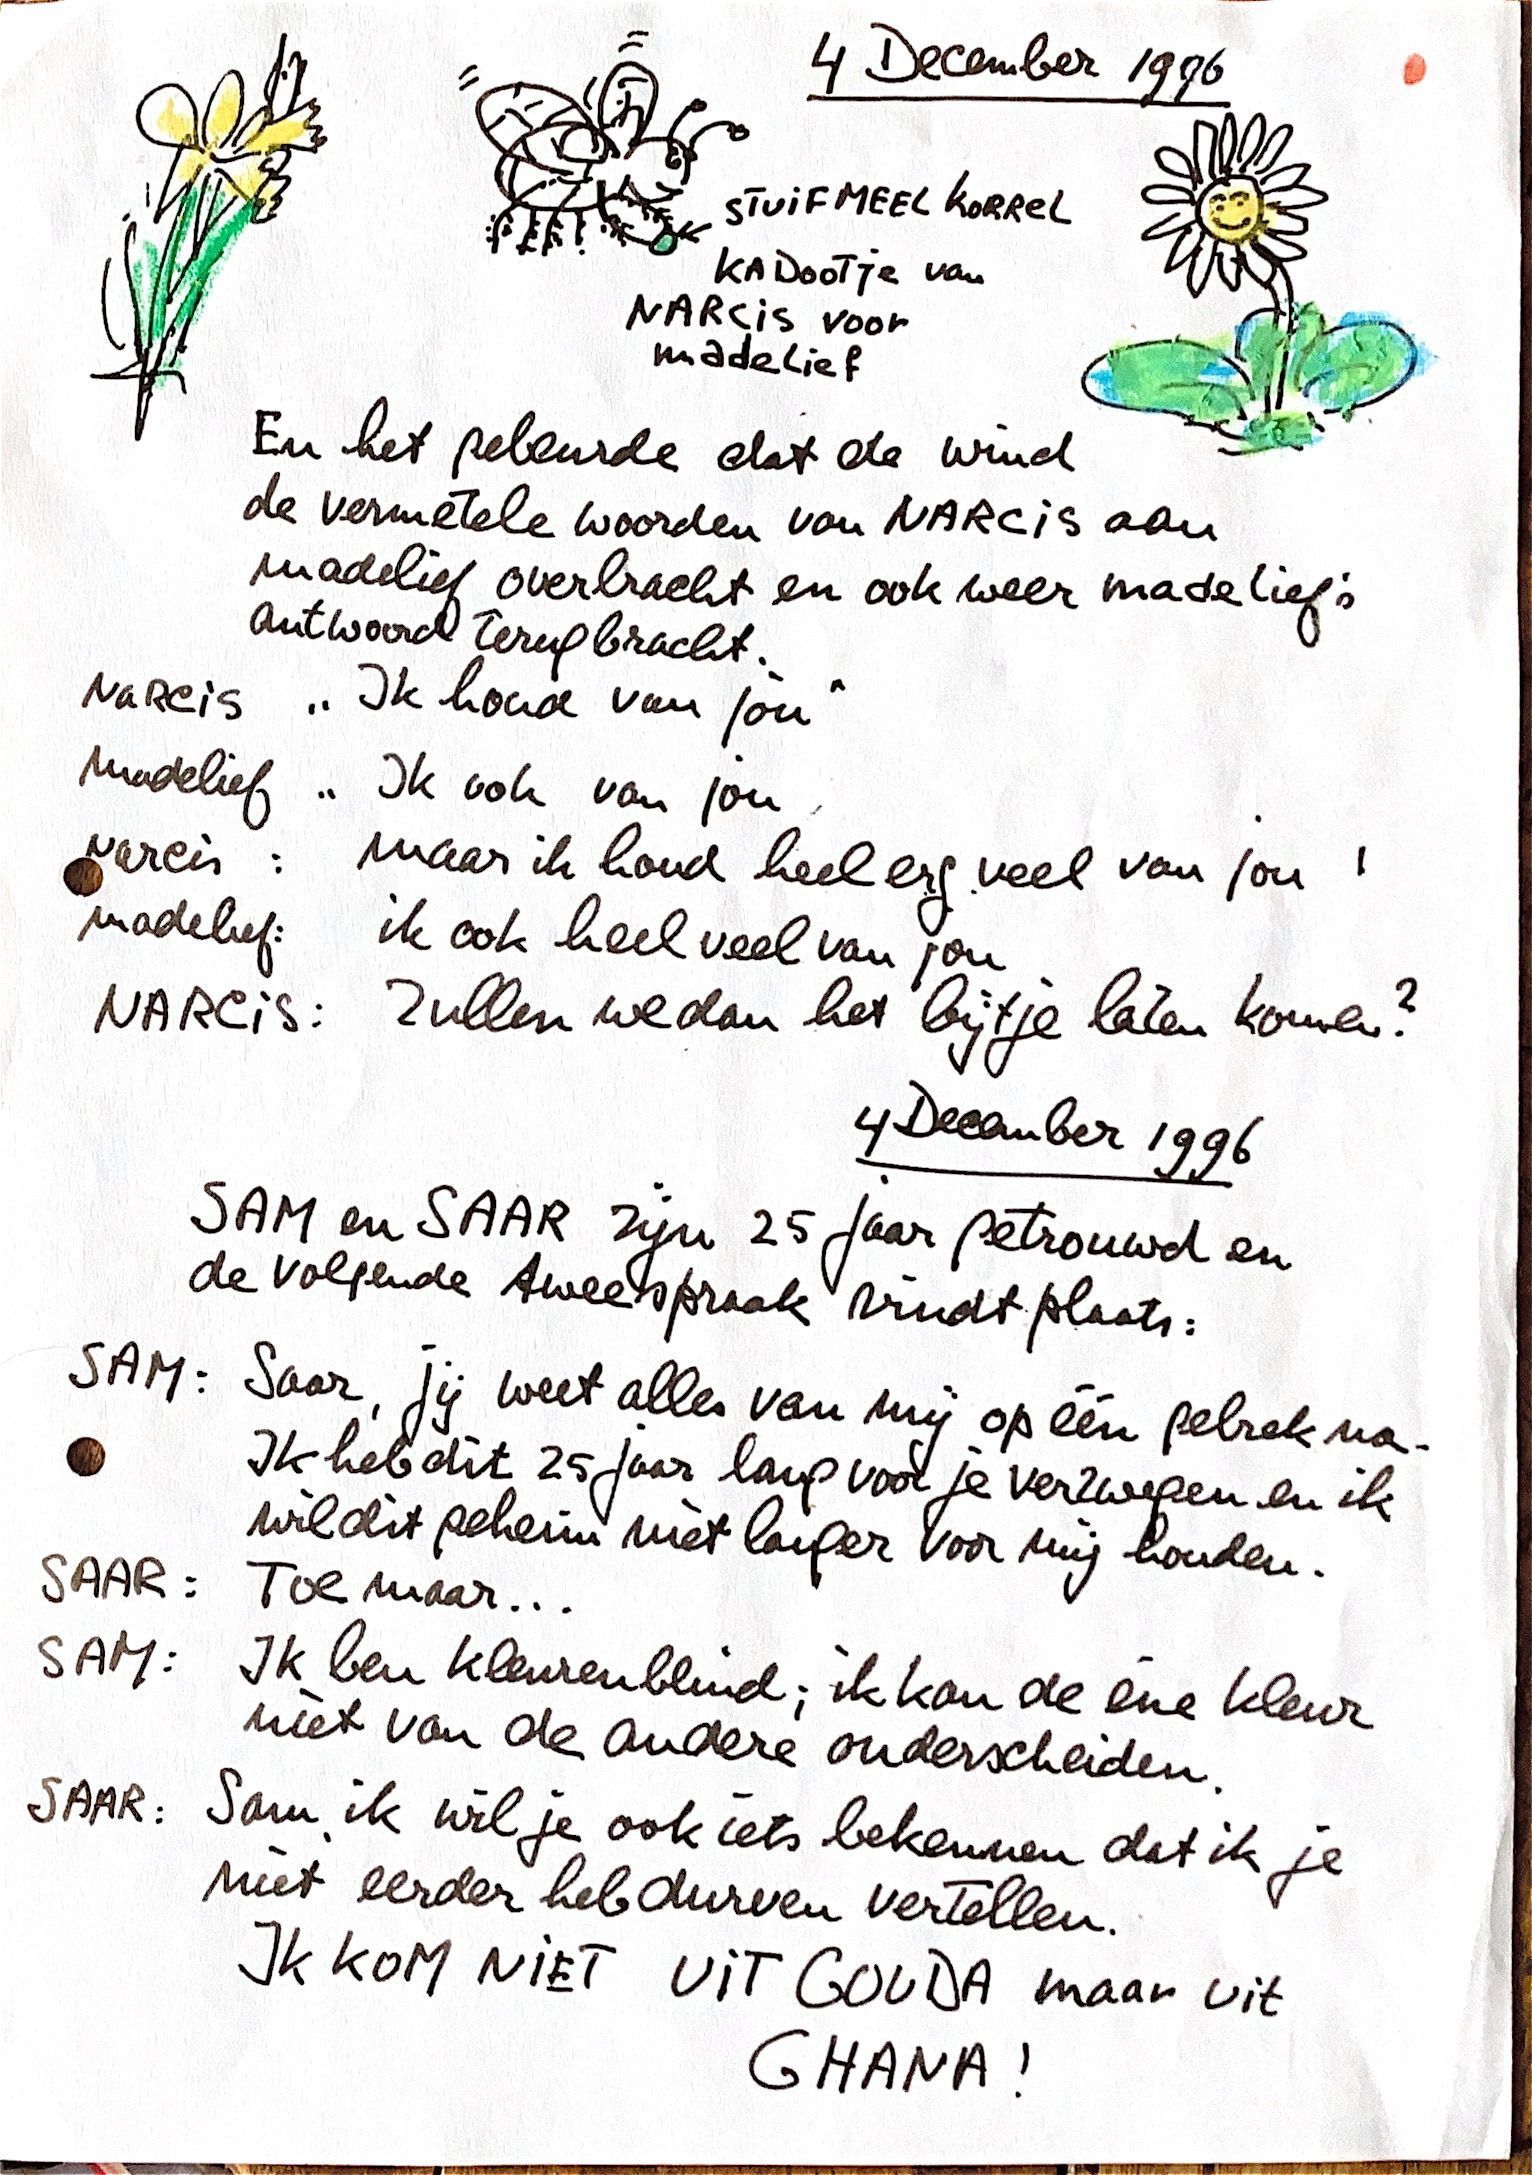 4 December 1996
STUIFMEEL KORREL
KADOOTJE van
NARCIS voor
madelief
En het gebeurde dat de wind
de vermetele woorden van NARCIS aan
madelief overbracht en ook weer madelief's
antwoord terugbracht.
NARCIS „ Ik houd van jou "
madelief „ Ik ook van jou
Narcis : maar ik houd heel erg veel van jou !
madelief: ik ook heel veel van jou
NARCIS: Zullen we dan het bijtje laten komen?
4 December 1996
SAM en SAAR zijn 25 jaar getrouwd en
de volgende tweespraak vindt plaats:
SAM: Saar, jij weet alles van mij op één gebrek na.
Ik heb dit 25 jaar lang voor je verzwegen en ik
wil dit geheim niet langer voor mij houden.
SAAR: Toe maar...
SAM: Ik ben kleurenblind; ik kan de ene kleur
niet van de andere onderscheiden.
SAAR: Sam, ik wil je ook iets bekennen dat ik je
niet eerder heb durven vertellen.
Ik KOM NIET UIT GOUDA maar uit
GHANA!